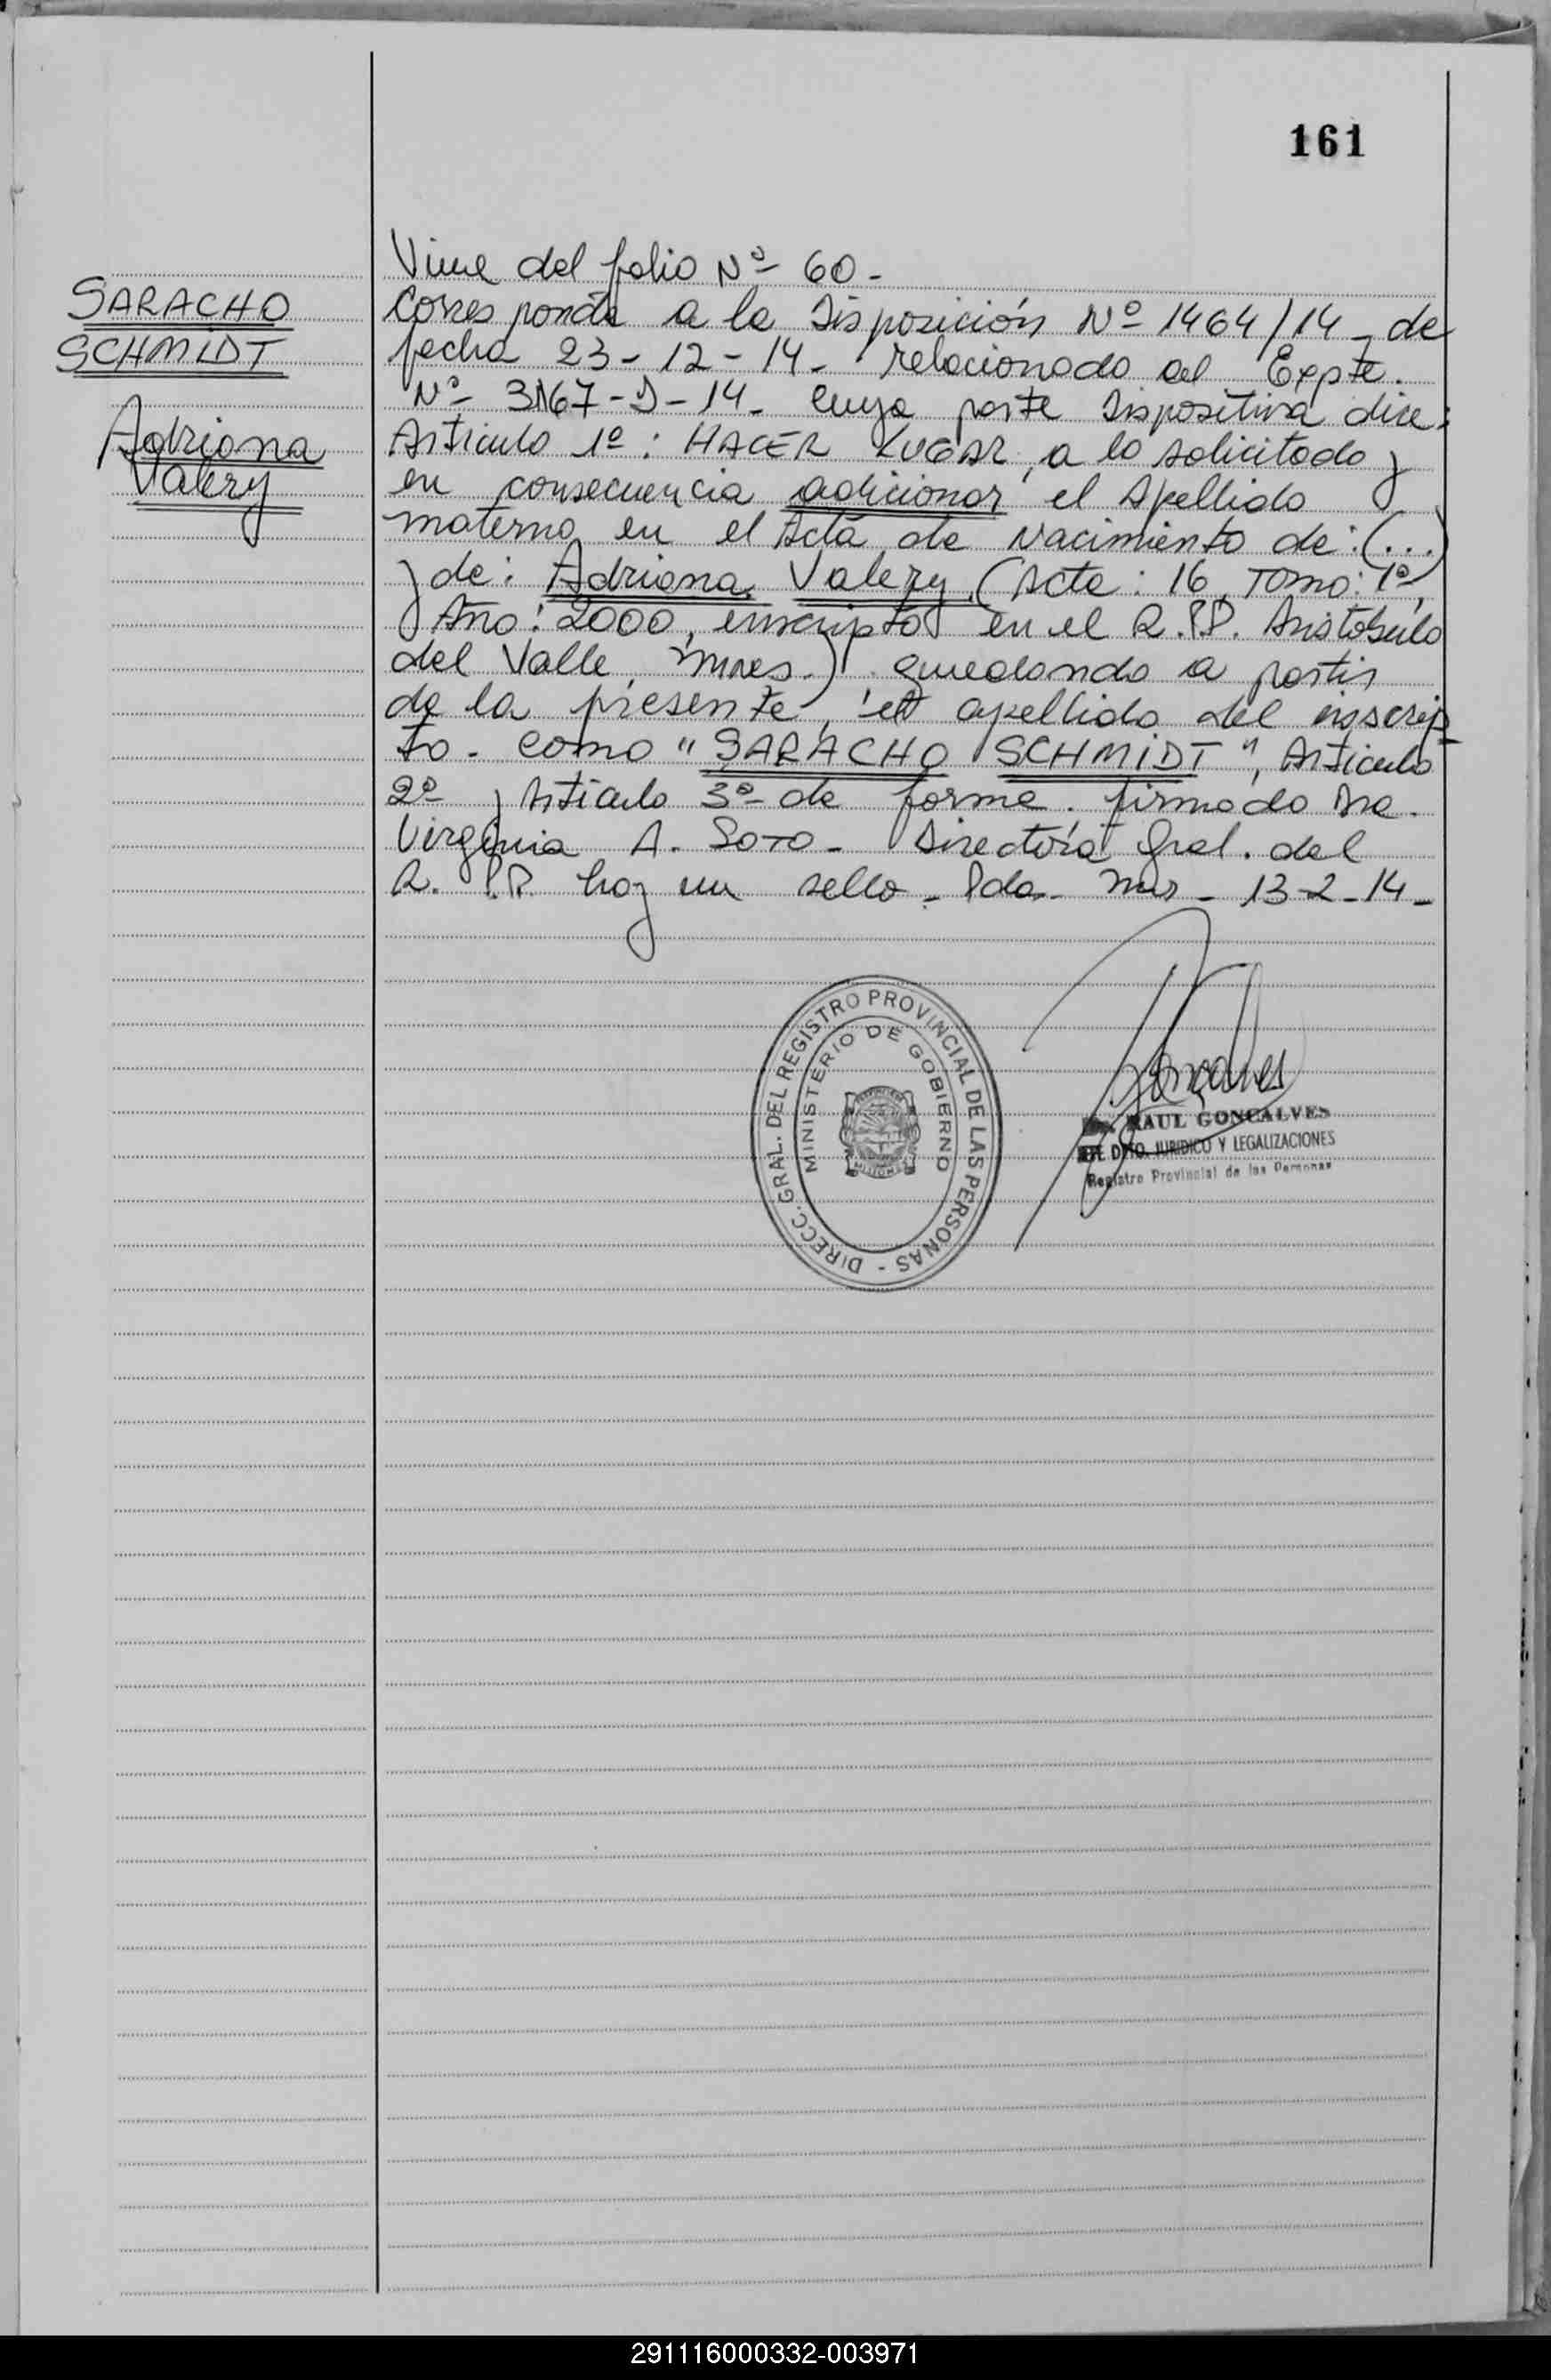 161
SARACHO
SCHMIDT
Adriana
Valery
Viene del folio Nº 60 -
Corresponde a la Disposición Nº 1464/14 - de
fecha 23-12-14 - relacionado al Expte.
Nº 3167-D-14 - cuya parte Dispositiva dice:
Artículo 1º: HACER LUGAR, a lo solicitado y
en consecuencia adicionar el Apellido
materno en el Acta de Nacimiento de: (...)
y de: Adriana Valery (Acta: 16, Tomo: 1º,
Año: 2000, inscripto en el R.P.P. Aristóbulo
del Valle, Mnes.) quedando a partir
de la presente, el apellido del inscrip
to - como "SARACHO SCHMIDT", Artículo
2º y Artículo 3º de forma. firmado Dra.
Virginia A. SOTO - Directora Gral. del
R.P.P. hay un sello - Pdas - Mns - 13-2-14 -
DIRECC. GRAL. DEL REGISTRO PROVINCIAL DE LAS PERSONAS -
MINISTERIO DE GOBIERNO
MISIONES
Dr. RAUL GONCALVES
DPTO. JURIDICO Y LEGALIZACIONES
Registro Provincial de las Personas
291116000332-003971